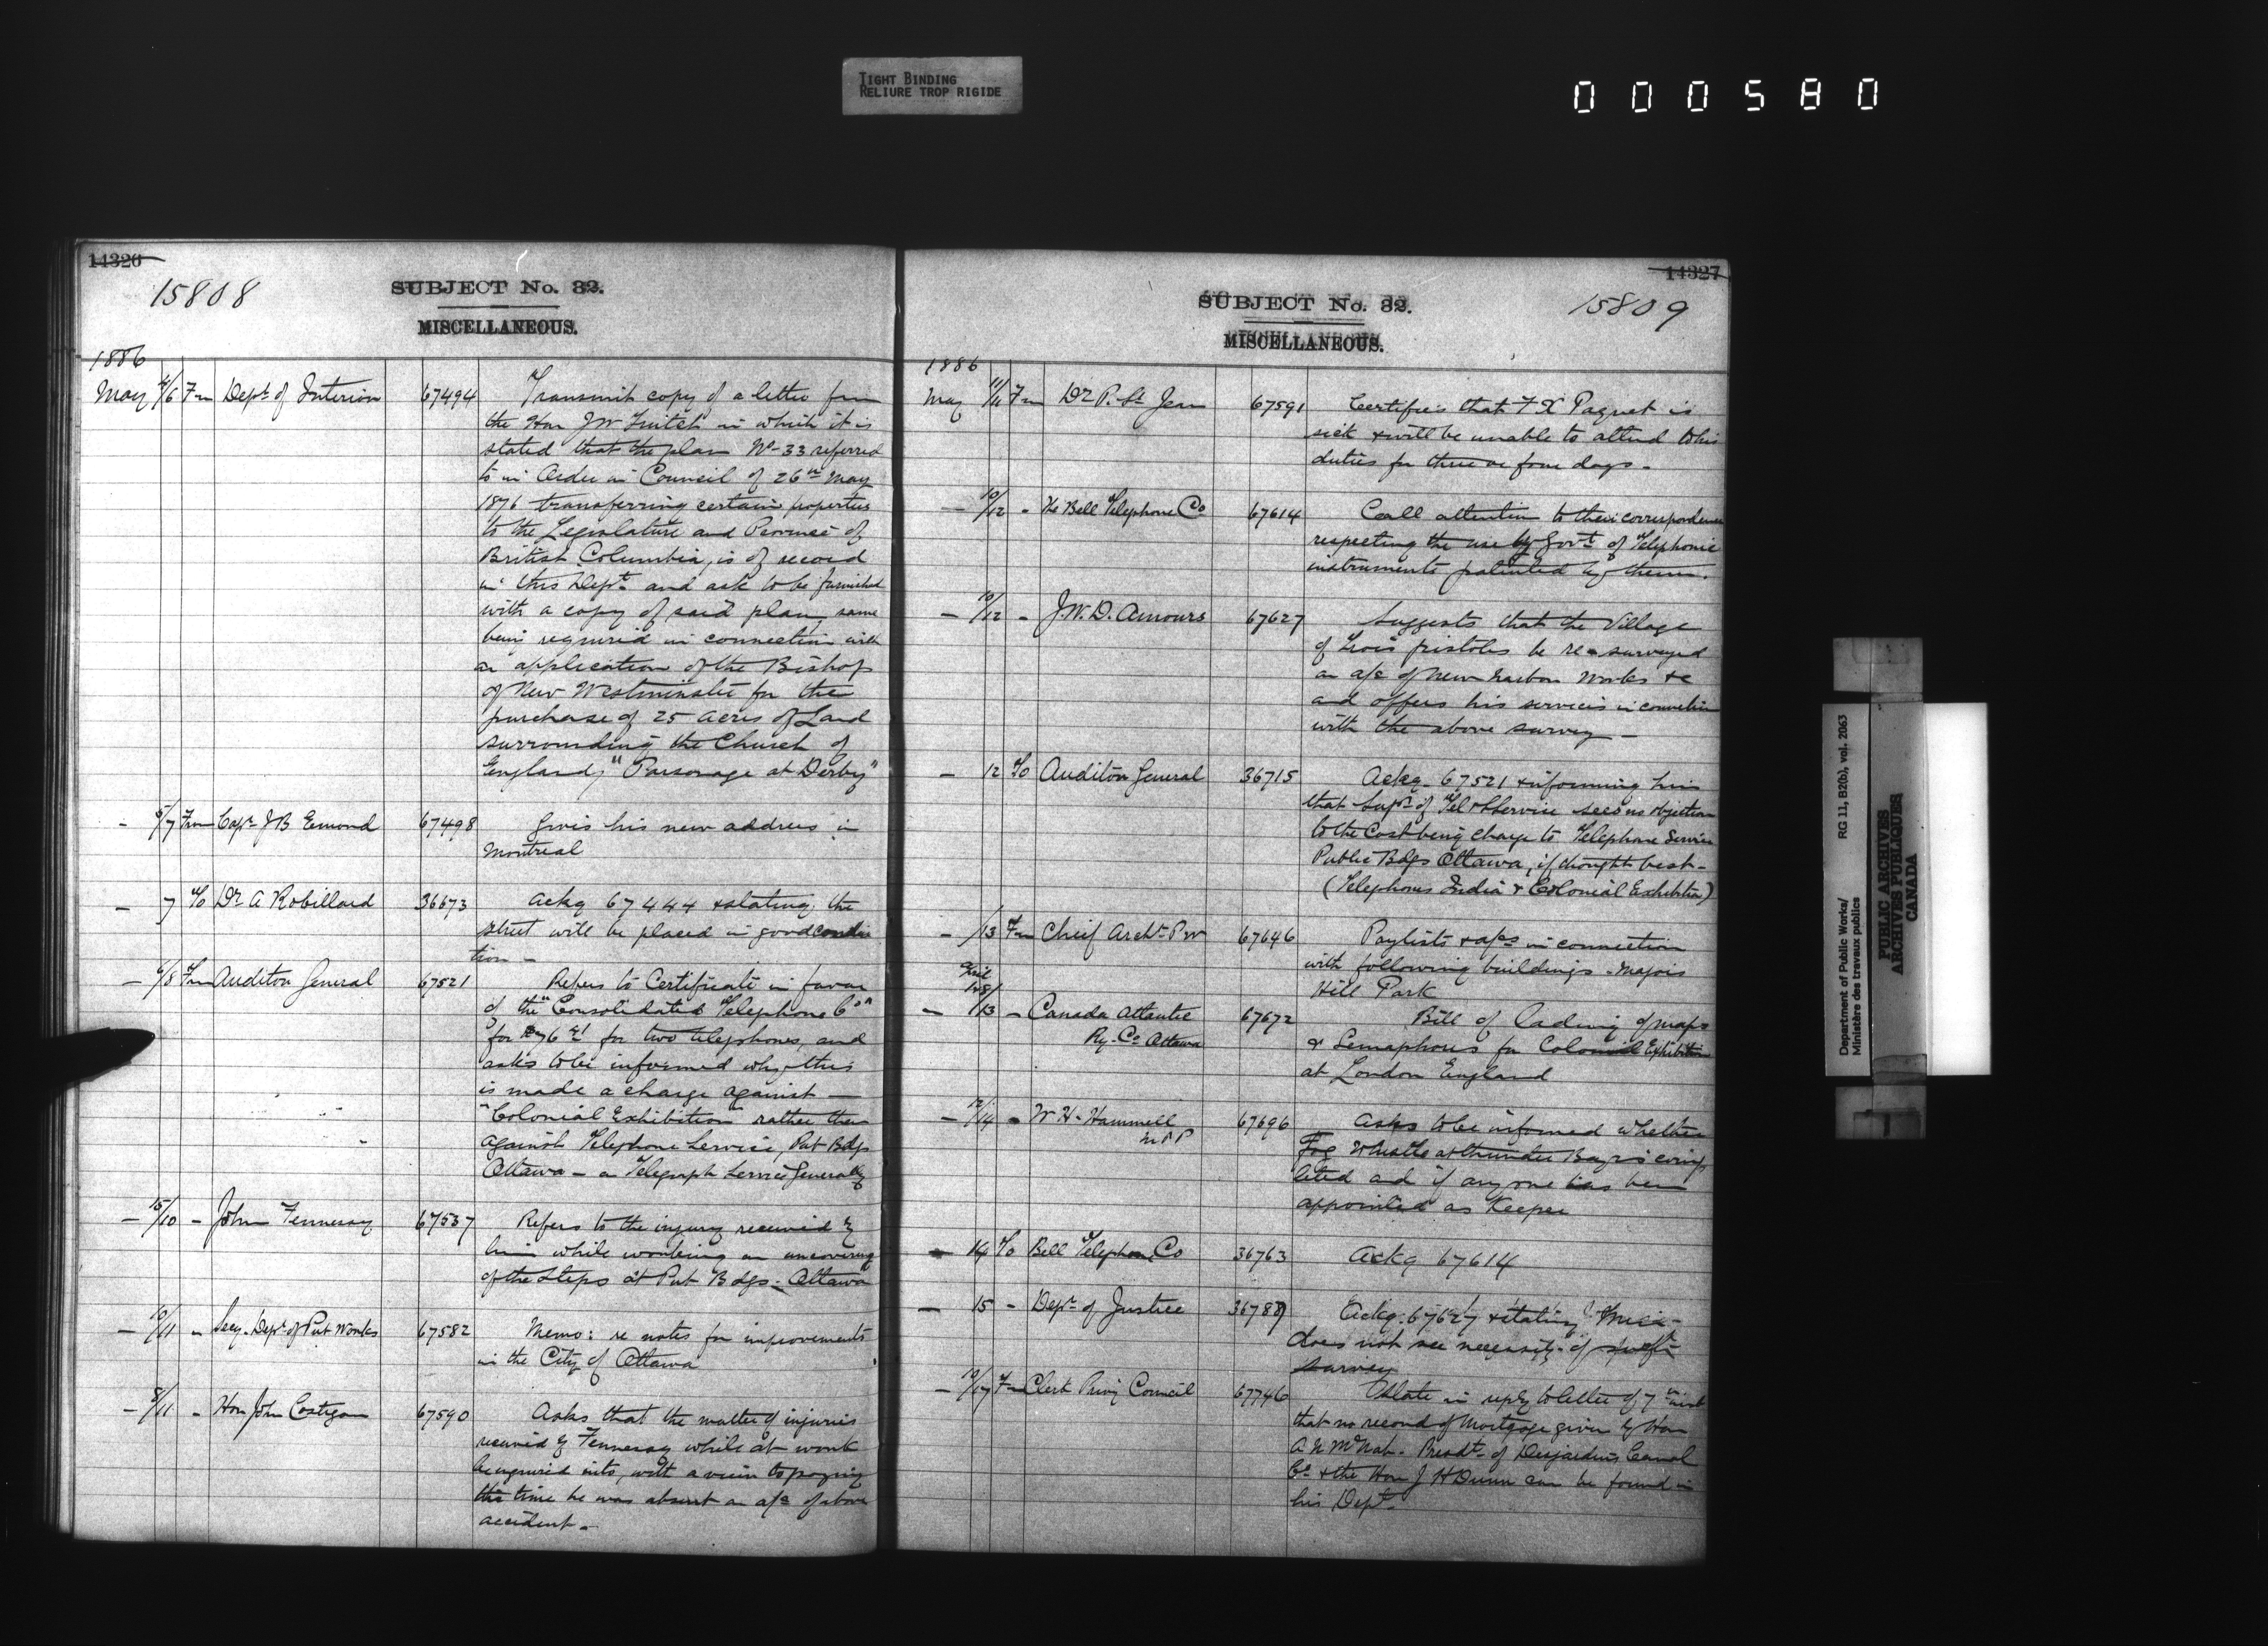 TIGHT BINDING
RELIURE TROP RIGIDE
000580
14326
15808
SUBJECT No. 32.
MISCELLANEOUS.
1886
May 4/6 Fm Dept of Interior 67494 Transmit copy of a letter from
the Hon J W in which it is
stated that the plan No 33 referred
to in Order in Council of 26th May
1876 transferring certain properties
to the Legislature and Province of
British Columbia, is of record
in this Dept and ask to be furnished
with a copy of said plan, same
being required in connection with
an application of the Bishop
of New Westminster for the
purchase of 25 acres of Land
surrounding the Church of
England, "Parsonage at Derby"
- 5/7 Fm Capt J B Emond 67498 Gives his new address in
Montreal
- 7 To Dr A Robillard 36673 Ackg 67444 & stating the
street will be placed in good condi
tion -
- 6/8 Fm Auditor General 67521 Refers to Certificate in favor
of the "Consolidated Telephone Co"
for for two telephones, and
asks to be informed why this
is made a charge against -
"Colonial Exhibition" rather than
against Telephone Service, Pub Bdgs
Ottawa - or Telegraph Service Generally
- 15/10 - John Fennessy 67537 Refers to the injury received by
him while working on uncovering
of the steps at Pub Bdgs - Ottawa
- 10/11 - Secy. Dept of Pub Works 67582 Memo: re notes for improvements
in the City of Ottawa
- 8/11 - Hon John Costigan 67590 Asks that the matter of injuries
received by Fennessy while at work
be inquired into, with a view to paying
the time he was absent on a/c of above
accident -
14327
15809
SUBJECT No. 32.
MISCELLANEOUS.
1886
May 11/11 Fm Dr P. St Jean 67591 Certifies that F X Paquet is
sick & will be unable to attend to his
duties for three or four days -
- 10/12 - The Bell Telephone Co 67614 Call attention to their correspondence
respecting the use by Govt of Telephonic
instruments patented by them.
- 10/12 - J. W. D. Amours 67627 Suggests that the Village
of Trois pistoles be re-surveyed
on a/c of New Harbor Works &c
and offers his services in connection
with the above survey -
- 12 To Auditor General 36715 Ackg 67521 & informing him
that Supt of Tel Service sees no objection
to the Cost being charge to Telephone Service
Public Bdgs Ottawa, if thought best -
(Telephones India & Colonial Exhibition)
- /13 Fm Chief Archt P W 67646 Paylists & a/cs in connection
with following buildings - Majors
Hill Park
April
- 28/13 - Canada Atlantic 67672 Bill of Lading of maps
Ry. Co Ottawa & Semaphores for Colonial Exhibition
at London England
- 12/14 - W H. Hammell 67696 Asks to be informed whether
M P P Fog Whistle at Thunder Bay is comp
leted and if any one has been
appointed as Keeper
- 14 To Bell Telephone Co 36763 Ackg 67614
- 15 - Dept of Justice 36789 Ackg. 67627 & stating
does not see necessity of
survey
- 10/17 Fm Clerk Privy Council 67746 State in reply to letter of 7th inst
that no record of Mortgage given by Hon
A N McNab. Presdt of Desjardins Canal
Co & the Hon J H Dunn can be found in
his Dept
Department of Public Works/ RG 11, B2(b), vol. 2063
Ministère des travaux publics
PUBLIC ARCHIVES
ARCHIVES PUBLIQUES
CANADA